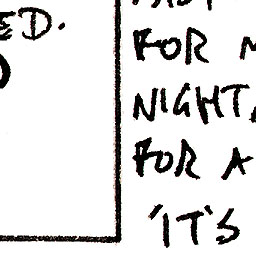 ED.
FOR
NIGHT
FOR A
'IT'S